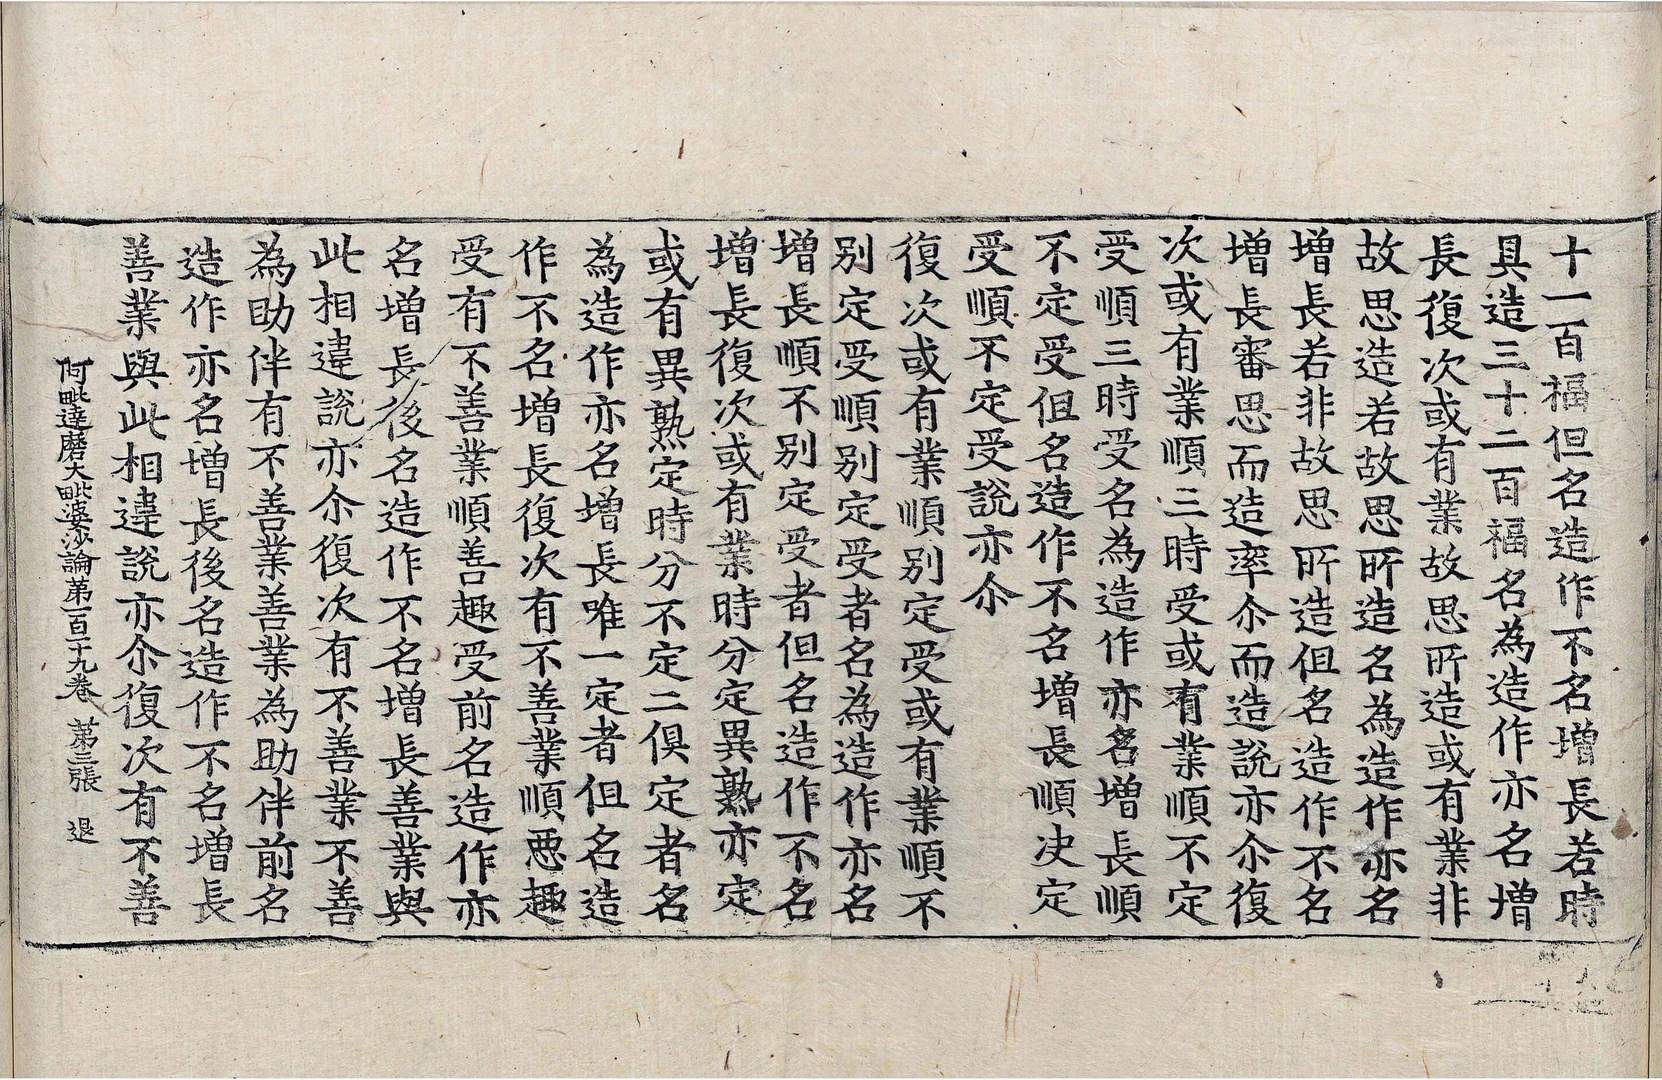 十一百福但名造作不名增長若時
具造三十二百福名為造作亦名增
長復次或有業故思所造或有業非
故思造若故思所造名為造作亦名
增長若非故思所造但名造作不名
增長審思而造率尒而造說亦尒復
次或有業順三時受或有業順不定
受順三時受名為造作亦名增長順
不定受但名造作不名增長順决定
受順不定受說亦尒
復次或有業順别定受或有業順不
别定受順别定受者名為造作亦名
增長順不别定受者但名造作不名
增長復次或有業時分定異熟亦定
或有異熟定時分不定二俱定者名
為造作亦名增長唯一定者但名造
作不名增長復次有不善業順惡趣
受有不善業順善趣受前名造作亦
名增長後名造作不名增長善業與
此相違說亦尒復次有不善業不善
為助伴有不善業善業為助伴前名
造作亦名增長後名造作不名增長
善業與此相違說亦尒復次有不善
阿毗達磨大毗婆沙論第一百一十九卷 第三張 退